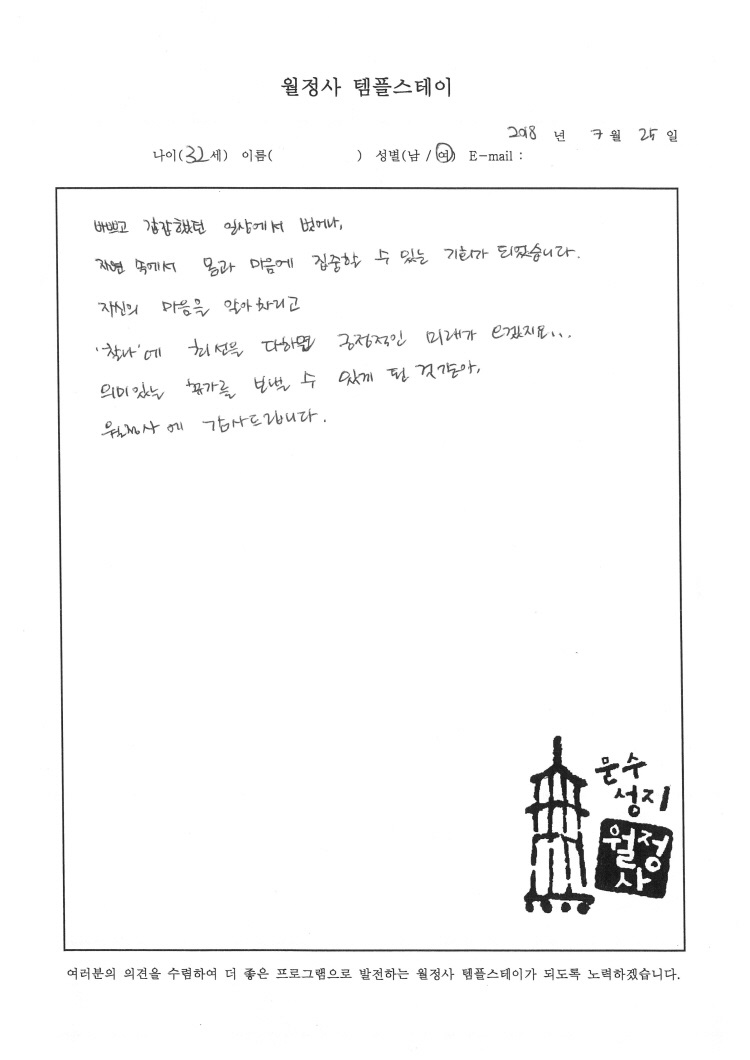 월정사 템플스테이
2018 년 7월 25일
나이(32세) 이름( ) 성별(남 / 여) E-mail :
바쁘고 갑갑했던 일상에서 벗어나,
자연 속에서 몸과 마음에 집중할 수 있는 기회가 되었습니다.
자신의 마음을 알아차리고
'찰나'에 최선을 다하면 긍정적인 미래가 되겠지요...
의미있는 휴가를 보낼 수 있게 된 것 같아,
월정사에 감사드립니다.
문수
성지
월정
사
여러분의 의견을 수렴하여 더 좋은 프로그램으로 발전하는 월정사 템플스테이가 되도록 노력하겠습니다.